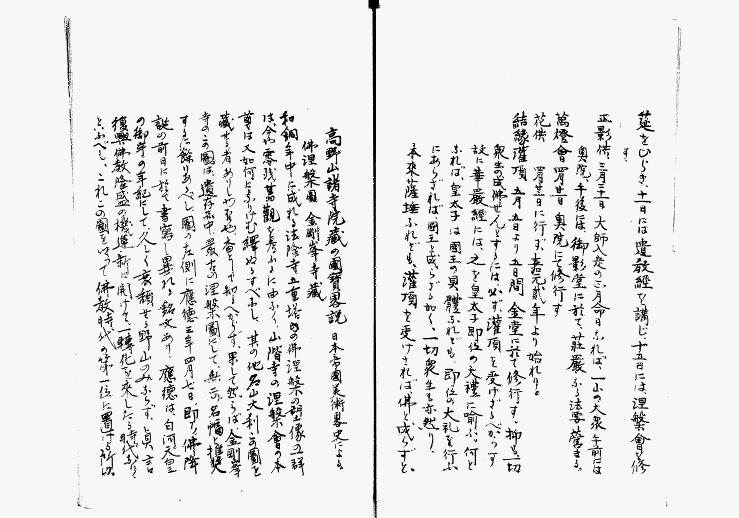 莚をひらき、十一には遺教經を講じ、十五日には涅槃會を修
す。
正影供 三月二十一日 大師入定の正月命日なれば、一山の大衆午前には
奥院午後には御影堂に於て、莊嚴なる法要營まる。
萬燈會 四月廿一日 奥院にて修行す
花供 四月廿一日に行ず、
結緣灌頂 五月五日より五日間 金堂に於て修行す、抑も一切
衆生の成佛せんとするには、必ず灌頂を受けざるべからず
故に華嚴經には、之を皇太子即位の大禮に喩ふ、何と
なれば、皇太子は國王の具體なれども、即位の大礼を行ふ
にあらざれば國王と成らざる如く、一切衆生も亦然り、
本來薩埵なれども、灌頂を受けざれば佛と成らずと、
高野山諸寺院藏の國寶畧説 日本帝國美術畧史による
佛涅槃圖 金剛峯寺藏
和銅年中に成れる法隆寺五重塔内の佛涅槃の塑像の一群
は、今尚零殘舊觀を考ふるに由なく、山階寺の涅槃會の本
尊は又如何になりけむ繹ぬるすべなし、其の他名山大刹、この圖を
藏せる者ありしや否や杳として知るべからず、果して然らば金剛峯
寺のこの圖は、遺存品中最古の涅槃圖にして、無二の名幅と推奬
するに餘りあるべし、圖の左側に應德三年四月七日、即ち佛降
誕の前日に於て書寫し畢れる銘文あり、應德は白河天皇
の御年の年記にして、久しく衰頽せる野山のみならず、眞言
復興佛教隆盛の機運新に開けて、一轉化を來したる時代なり
といふべし、これこの圖を以て佛教時代の第一位に置ける所以